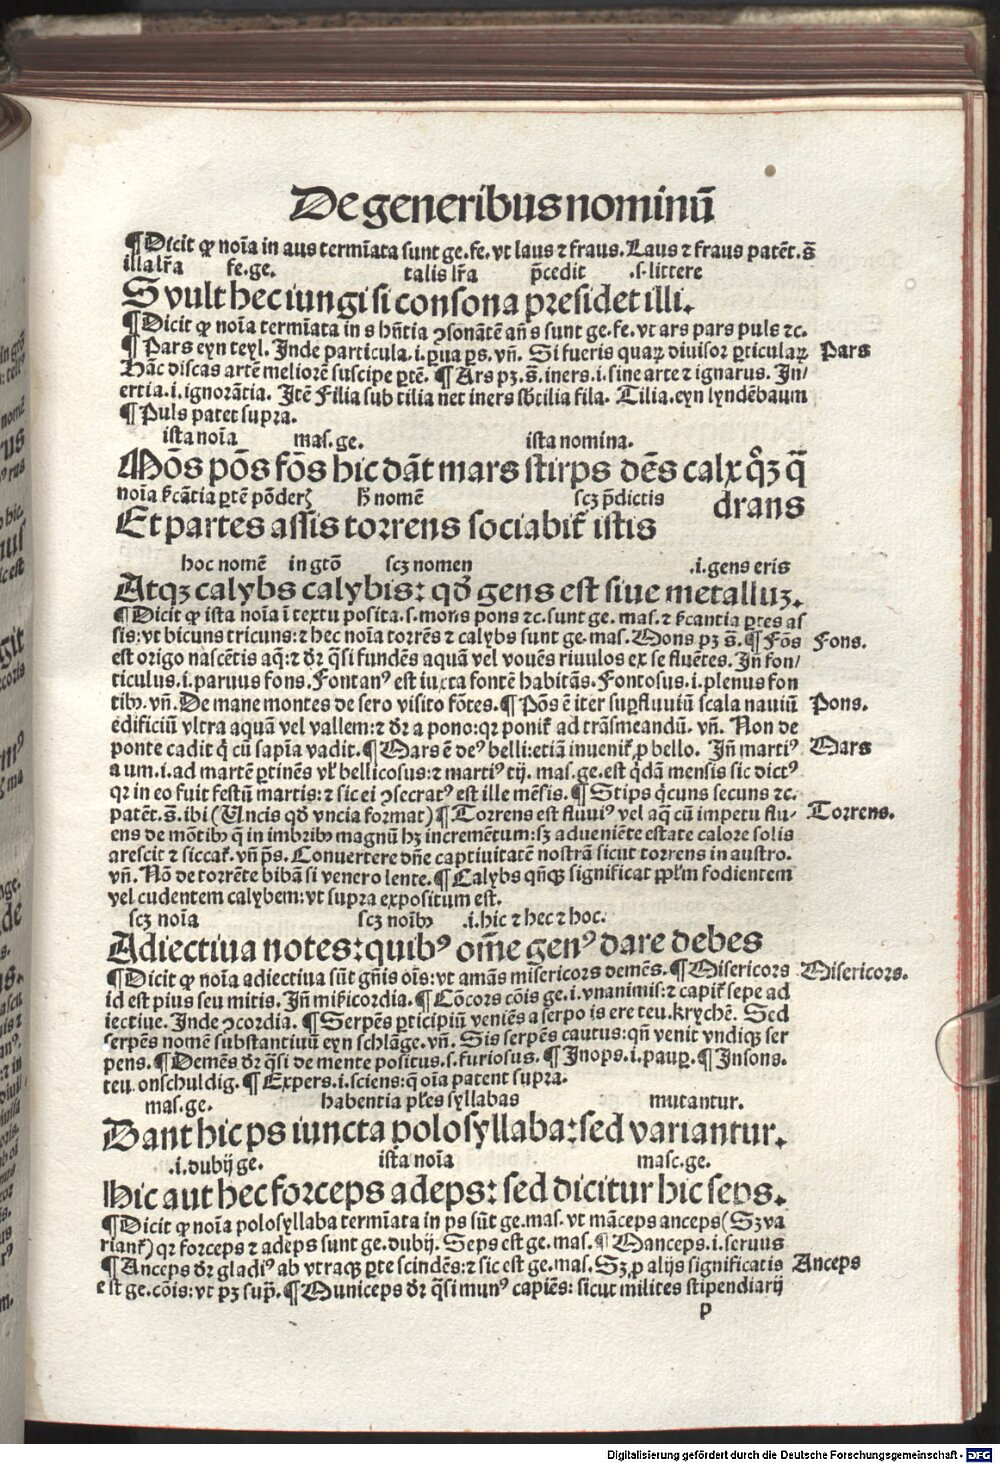 De generibus nominū
¶Dicit qꝛ noīa in aus termīata sunt ge.fe.vt laus ⁊ fraus.Laus ⁊ fraus patēt.s̄
illa lr̄a fe.ge. talis lr̄a p̄cedit .s.littere
S vult hec iungi si consona presidet illi.
¶Dicit qꝛ noīa termīata in s hn̄tia ↄsonātē an̄ s sunt ge.fe.vt ars pars puls ⁊c.
¶Pars eyn teyl. Inde particula.i.ꝑua ꝑs.vn̄. Si fueris quaꝝ diuisor ꝑticulaꝝ Pars
Hac discas artē meliorē suscipe ꝑtē. ¶Ars pꝫ.s̄.iners.i.sine arte ⁊ ignarus. In/
ertia.i.ignorātia. Itē Filia sub tilia net iners sb̄tilia fila. Tilia.eyn lyndēbaum
¶Puls patet supra.
ista noīa mas.ge. ista nomina.
Mōs pōs fōs hic dāt mars stirps dēs calx qͦꝫ q̄
noīa fīcātia ꝑtē pōderꝭ hͦ nomē scꝫ p̄dictis drans
Et partes assis torrens sociabit̄ istis
hoc nomē in gtō scꝫ nomen .i.gens eris
Atqꝫ calybs calybis: qd̄ gens est siue metalluꝫ.
¶Dicit qꝛ ista noīa ī textu posita.s.mons pons ⁊c.sunt ge. mas.⁊ fīcantia ꝑtes as
sis:vt bicuns tricuns:⁊ hec noīa torrēs ⁊ calybs sunt ge.mas. Mons pꝫ s̄.¶Fōs Fons.
est origo nascētis aq̄:⁊ dr̄ q̄si fundēs aquā vel vouēs riuulos ex se fluētes. Jn̄ fon/
ticulus.i.paruus fons.Fontanꝰ est iuxta fontē habitās.Fontosus.i.plenus fon
tibꝫ.vn̄. De mane montes de sero visito fōtes.¶Pōs ē iter suꝑfluuiū scala nauiū Pons.
edificiū vltra aquā vel vallem:⁊ dr̄ a pono:qꝛ ponit̄ ad trāsmeandū. vn̄. Non de
ponte cadit q̄ cū sapīa vadit.¶Mars ē deꝰ belli:etiā inuenit̄ ꝓ bello. Jn̄ martiꝰ Mars
a um.i.ad martē ꝑtinēs vl̄ bellicosus:⁊ martiꝰ tij. mas.ge.est q̄dā mensis sic dictꝰ
qꝛ in eo fuit festū martis:⁊ sic ei ↄsecratꝰ est ille mēsis.¶Stips q̄cuns secuns ⁊c.
patēt.s̄.ibi (Uncis qd̄ vncia format)¶Torrens est fluuiꝰ vel aq̄ cū impetu flu- Torrens.
ens de mōtibꝫ q̄ in imbribꝫ magnū hꝫ incremētum:sꝫ adueniēte estate calore solis
arescit ⁊ siccat̄.vn̄ ps̄. Conuertere dn̄e captiuitatē nostrā sicut torrens in austro.
vn̄. Nō de torrēte bibā si venero lente.¶Calybs qn̄qꝫ significat ppl̄m fodientem
vel cudentem calybem:vt supra expositum est.
scꝫ noīa scꝫ noīb .i.hic ⁊ hec ⁊ hoc.
Adiectiua notes:quibꝰ om̄e genꝰ dare debes
¶Dicit qꝛ noīa adiectiua sūt gn̄is oīs:vt amās misericors demēs.¶Misericors Misericors.
id est pius seu mitis. Jn̄ mīicordia.¶Cōcors cōis ge.i.vnanimis:⁊ capit̄ sepe ad
iectiue. Inde ↄcordia. ¶Serpēs ꝑticipiū veniēs a serpo is ere teu.krychē. Sed
serpēs nomē substantiuū eyn schlāge.vn̄. Sis serpēs cautus:qn̄ venit vndiqꝫ ser
pens.¶Demēs dr̄ q̄si de mente positus.s.furiosus. ¶Inops.i.pauꝑ.¶Insons.
teu.onschuldig.¶Expers.i.sciens:q̄ oīa patent supra.
mas.ge. habentia pl̄es syllabas mutantur.
Dant hic ps iuncta polosyllaba:sed variantur.
.i.dubij ge. ista noīa masc.ge.
Hic aut hec forceps adeps: sed dicitur hic seps.
¶Dicit qꝛ noīa polosyllaba termīata in ps sūt ge.mas. vt māceps anceps(Sꝫ va
riant̄)qꝛ forceps ⁊ adeps sunt ge.dubij. Seps est ge.mas.¶Manceps.i.seruus
¶Anceps dr̄ gladiꝰ ab vtraqꝫ ꝑte scindēs:⁊ sic est ge.mas. Sꝫ ꝓ alijs significatis Anceps
est ge.cōis:vt pꝫ sup̄.¶Municeps dr̄ q̄si munꝰ capiēs: sicut milites stipendiarij
p
Digitalisierung gefördert durch die Deutsche Forschungsgemeinschaft - DFG